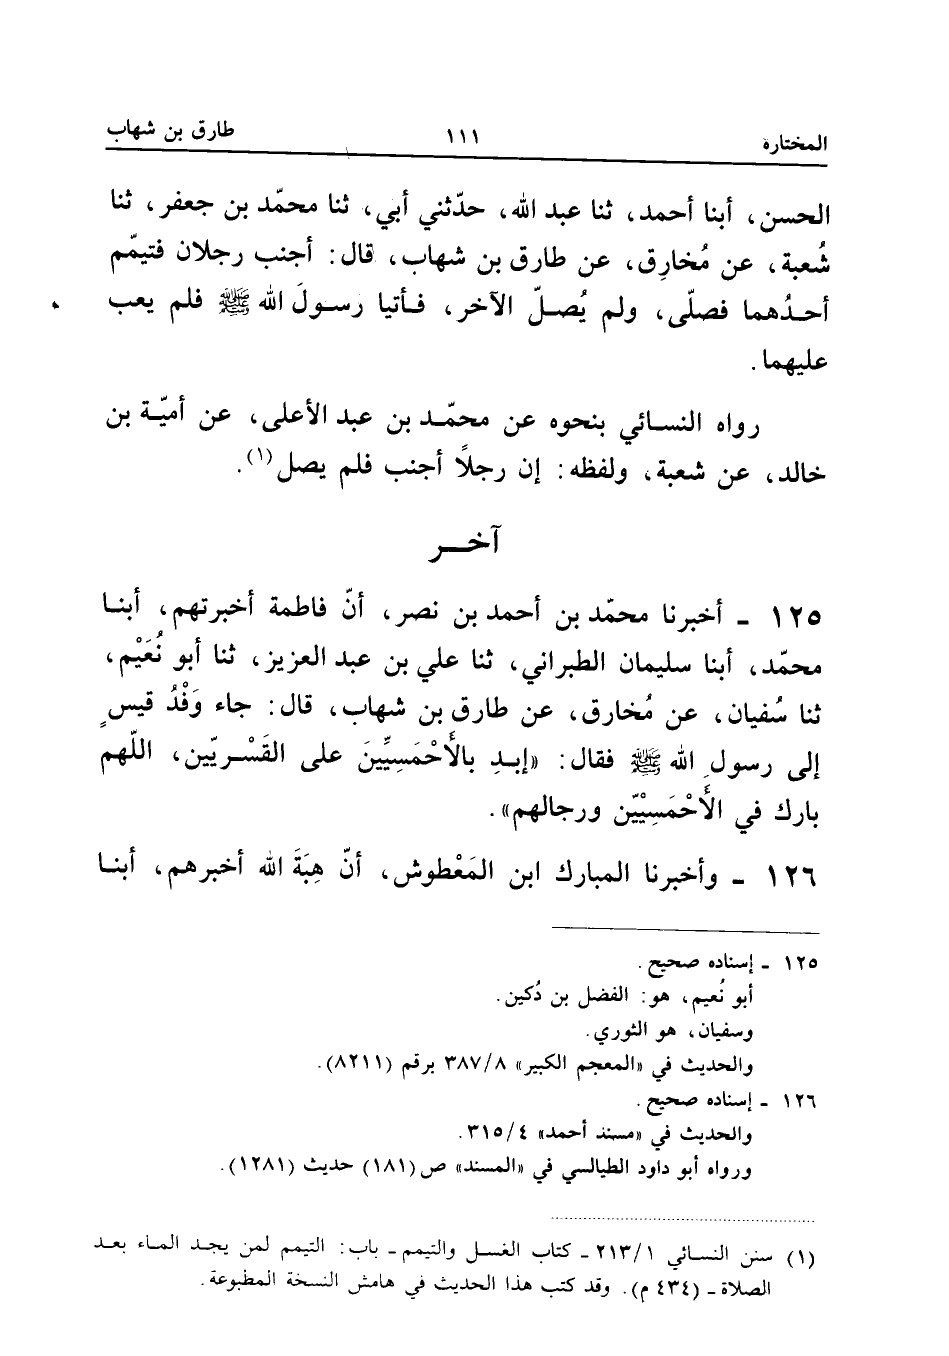 المختارة ١١١ طارق بن شهاب
الحسن، أبنا أحمد، ثنا عبد الله، حدّثني أبي، ثنا محمّد بن جعفر، ثنا
شُعبة، عن مُخارِق، عن طارق بن شهاب، قال: أجنب رجلان فتيمّم
أحدُهما فصلّى، ولم يُصلّ الآخر، فأتيا رسولَ الله ﷺ فلم يعب
عليهما.
رواه النسائي بنحوه عن محمّد بن عبد الأعلى، عن أميّة بن
خالد، عن شعبة، ولفظه: إن رجلاً أجنب فلم يصل(١).
آخر
١٢٥ ـ أخبرنا محمّد بن أحمد بن نصر، أنّ فاطمة أخبرتهم، أبنا
محمّد، أبنا سليمان الطبراني، ثنا علي بن عبد العزيز، ثنا أبو نُعَيْم،
ثنا سُفيان، عن مُخارق، عن طارق بن شهاب، قال: جاء وَفْدُ قيسٍ
إلى رسولِ الله ﷺ فقال: «إبدِ بالأَحْمَسِيِّينَ على القَسْريّين، اللّهم
بارك في الأَحْمَسِيْيّن ورجالهم».
١٢٦ ـ وأخبرنا المبارك ابن المَعْطوش، أنّ هِبَةَ الله أخبرهم، أبنا
١٢٥ ـ إسناده صحيح.
أبو نُعيم، هو: الفضل بن دُكين.
وسفيان، هو الثوري.
والحديث في «المعجم الكبير» ٣٨٧/٨ برقم (٨٢١١).
١٢٦ ـ إسناده صحيح.
والحديث في «مسند أحمد» ٣١٥/٤.
ورواه أبو داود الطيالسي في «المسند» ص(١٨١) حديث (١٢٨١).
(١) سنن النسائي ٢١٣/١ ـ كتاب الغسل والتيمم ـ باب: التيمم لمن يجد الماء بعد
الصلاة ـ (٤٣٤ م). وقد كتب هذا الحديث في هامش النسخة المطبوعة.